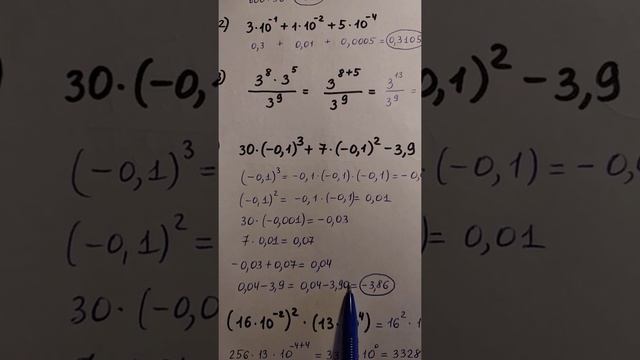 2) 3·10⁻¹ + 1·10⁻² + 5·10⁻⁴
0,3 + 0,01 + 0,0005 = 0,3105
3⁸·3⁵/3⁹ = 3⁸⁺⁵/3⁹ = 3¹³/3⁹ =
30·(-0,1)³ + 7·(-0,1)² - 3,9
(-0,1)³ = -0,1·(-0,1)·(-0,1) = -0,
(-0,1)² = -0,1·(-0,1) = 0,01
30·(-0,001) = -0,03
7·0,01 = 0,07
-0,03 + 0,07 = 0,04
0,04 - 3,9 = 0,04 - 3,90 = -3,86
(16·10⁻²)²·(13· ⁴) = 16²·1
256·13·10⁻⁴⁺⁴ = 33 ·10⁰ = 3328